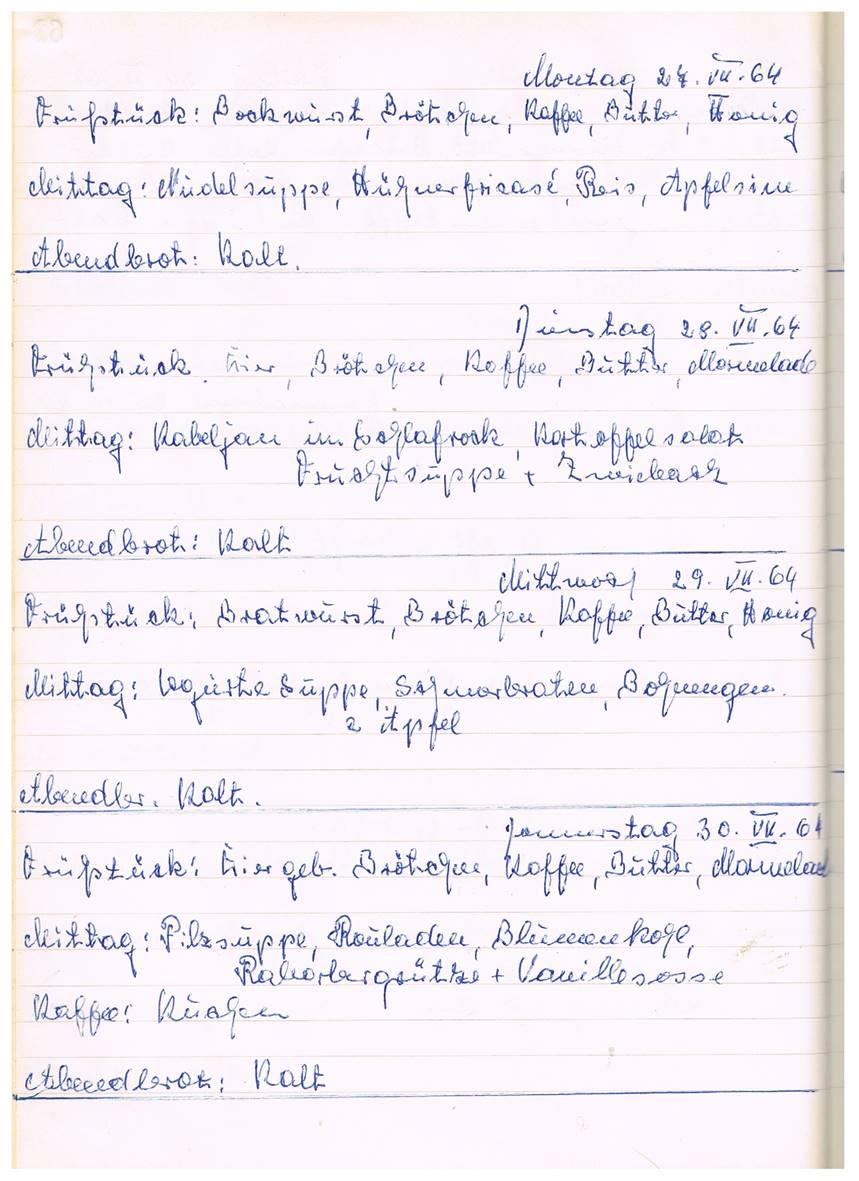 Montag 27. VII. 64
Frühstück: Bockwurst, Brötchen, Kaffee, Butter, Honig
Mittag: Nudelsuppe, Hühnerfricasé, Reis, Apfelsine
Abendbrot: Kalt.
Dienstag 28. VII. 64
Frühstück. Eier, Brötchen, Kaffee, Butter, Marmelade
Mittag: Kabeljau im Schlafrock, Kartoffelsalat
Fruchtsuppe + Zwieback
Abendbrot: Kalt
Mittwoch 29. VII. 64
Frühstück: Bratwurst, Brötchen, Kaffee, Butter, Honig
Mittag: legierte Suppe, Schmorbraten, Bohnengem.
2 Äpfel
Abendbr. Kalt.
Donnerstag 30. VII. 64
Frühstück: Eier geb. Brötchen, Kaffee, Butter, Marmelad
Mittag: Pilzsuppe, Rouladen, Blumenkohl,
Rabarbergrütze + Vanillesosse
Kaffee: Kuchen
Abendbrot: Kalt